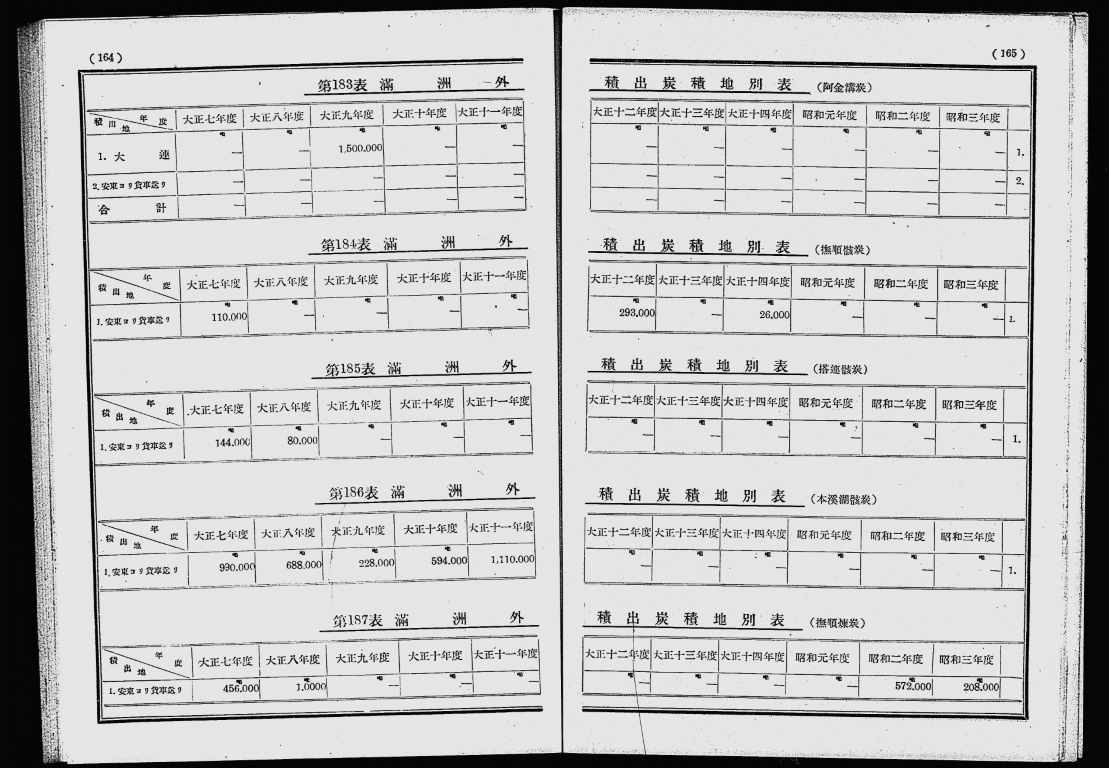 (164)
第183表 滿 洲 外
積出地 年度 大正七年度 大正八年度 大正九年度 大正十年度 大正十一年度
噸 噸 噸 噸 噸
1. 大 連 — — 1,500.000 — —
2. 安東ヨリ貨車送リ — — — — —
合 計 — — — — —
第184表 滿 洲 外
積出地 年度 大正七年度 大正八年度 大正九年度 大正十年度 大正十一年度
噸 噸 噸 噸 噸
1. 安東ヨリ貨車送リ 110.000 — — — —
第185表 滿 洲 外
積出地 年度 大正七年度 大正八年度 大正九年度 大正十年度 大正十一年度
噸 噸 噸 噸 噸
1. 安東ヨリ貨車送リ 144.000 80.000 — — —
第186表 滿 洲 外
積出地 年度 大正七年度 大正八年度 大正九年度 大正十年度 大正十一年度
噸 噸 噸 噸 噸
1. 安東ヨリ貨車送リ 990.000 688.000 228.000 594.000 1,110.000
第187表 滿 洲 外
積出地 年度 大正七年度 大正八年度 大正九年度 大正十年度 大正十一年度
噸 噸 噸 噸 噸
1. 安東ヨリ貨車送リ 456.000 1.0000 — — —
(165)
積出炭積地別表 (阿金溝炭)
大正十二年度 大正十三年度 大正十四年度 昭和元年度 昭和二年度 昭和三年度
噸 噸 噸 噸 噸 噸
— — — — — — 1.
— — — — — — 2.
— — — — — —
積出炭積地別表 (撫順骸炭)
大正十二年度 大正十三年度 大正十四年度 昭和元年度 昭和二年度 昭和三年度
噸 噸 噸 噸 噸 噸
293.000 — 26.000 — — — 1.
積出炭積地別表 (搭連骸炭)
大正十二年度 大正十三年度 大正十四年度 昭和元年度 昭和二年度 昭和三年度
噸 噸 噸 噸 噸 噸
— — — — — — 1.
積出炭積地別表 (本溪湖骸炭)
大正十二年度 大正十三年度 大正十四年度 昭和元年度 昭和二年度 昭和三年度
噸 噸 噸 噸 噸 噸
— — — — — — 1.
積出炭積地別表 (撫順煉炭)
大正十二年度 大正十三年度 大正十四年度 昭和元年度 昭和二年度 昭和三年度
噸 噸 噸 噸 噸 噸
— — — — 572.000 208.000